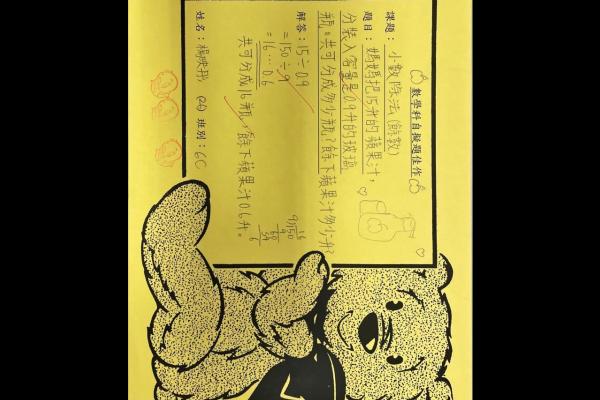 數學科自擬題佳作
課題：小數除法(餘數)
題目：媽媽把15升的蘋果汁，
分裝入容量是0.9升的玻璃
瓶。共可分成多少瓶？餘下蘋果汁多少升？
解答：15÷0.9
=150÷9
=16…0.6
16
9)150
9
60
54
6
共可分成16瓶，餘下蘋果汁0.6升。
姓名：楊映彤 (26) 班別：6C